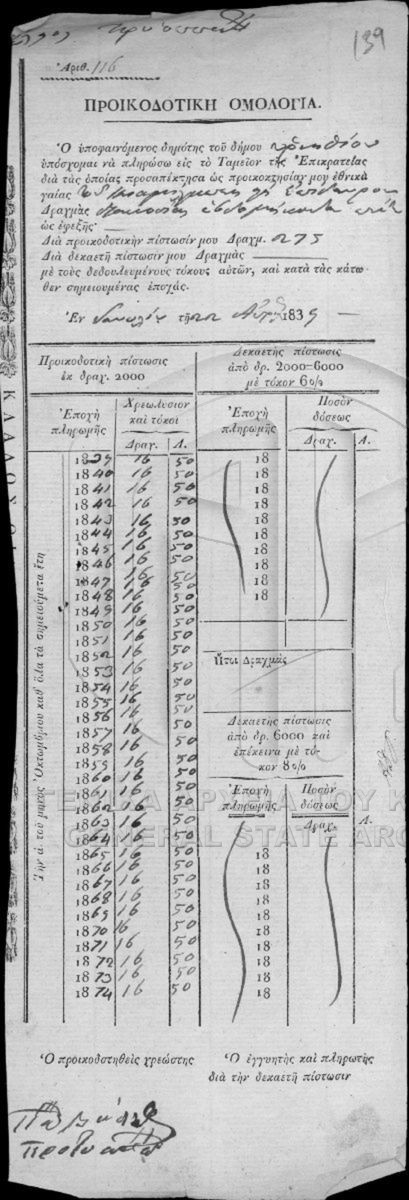 139
Ἀριθ. 116
ΠΡΟΙΚΟΔΟΤΙΚΗ ΟΜΟΛΟΓΙΑ.
Ὁ ὑποφαινόμενος δημότης τοῦ δήμου
ὑπόσχομαι νὰ πληρώσω εἰς τὸ Ταμεῖον τῆς Ἐπικρατείας
διὰ τὰς ὁποίας προσαπέκτησα ὡς προικοκτησίαν μου ἐθνικὰ
γαίας
Δραχμὰς
ὡς ἐφεξῆς·
Διὰ προικοδοτικὴν πίστωσίν μου Δραχμ. 275
Διὰ δεκαετῆ πίστωσίν μου Δραχμὰς
μὲ τοὺς δεδουλευμένους τόκους αὐτῶν, καὶ κατὰ τὰς κάτω-
θεν σημειουμένας ἐποχάς.
Ἐν τῇ 22 1839
Προικοδοτικὴ πίστωσις
ἐκ δραχ. 2000
Ἐποχὴ
πληρωμῆς
Χρεωλύσιον
καὶ τόκοι
Δραχ. Λ.
Τὴν ά. τοῦ μηνὸς Ὀκτωμβρίου καθ' ὅλα τὰ σημειούμενα ἔτη
1839 16 50
1840 16 50
1841 16 50
1842 16 50
1843 16 50
1844 16 50
1845 16 50
1846 16 50
1847 16 50
1848 16 50
1849 16 50
1850 16 50
1851 16 50
1852 16 50
1853 16 50
1854 16 50
1855 16 50
1856 16 50
1857 16 50
1858 16 50
1859 16 50
1860 16 50
1861 16 50
1862 16 50
1863 16 50
1864 16 50
1865 16 50
1866 16 50
1867 16 50
1868 16 50
1869 16 50
1870 16 50
1871 16 50
1872 16 50
1873 16 50
1874 16 50
Δεκαετὴς πίστωσις
ἀπὸ δρ. 2000–6000
μὲ τόκον 6%
Ἐποχὴ
πληρωμῆς
Ποσὸν
δόσεως
Δραχ. Λ.
18
18
18
18
18
18
18
18
18
18
Ἤτοι Δραχμὰς
Δεκαετὴς πίστωσις
ἀπὸ δρ. 6000 καὶ
ἐπέκεινα μὲ τό-
κον 8%
Ἐποχὴ
πληρωμῆς
Ποσὸν
δόσεως
Δραχ. Λ.
18
18
18
18
18
18
18
18
18
18
GENERAL STATE ARC
Ὁ προικοδοτηθεὶς χρεώστης
Ὁ ἐγγυητὴς καὶ πληρωτὴς
διὰ τὴν δεκαετῆ πίστωσιν